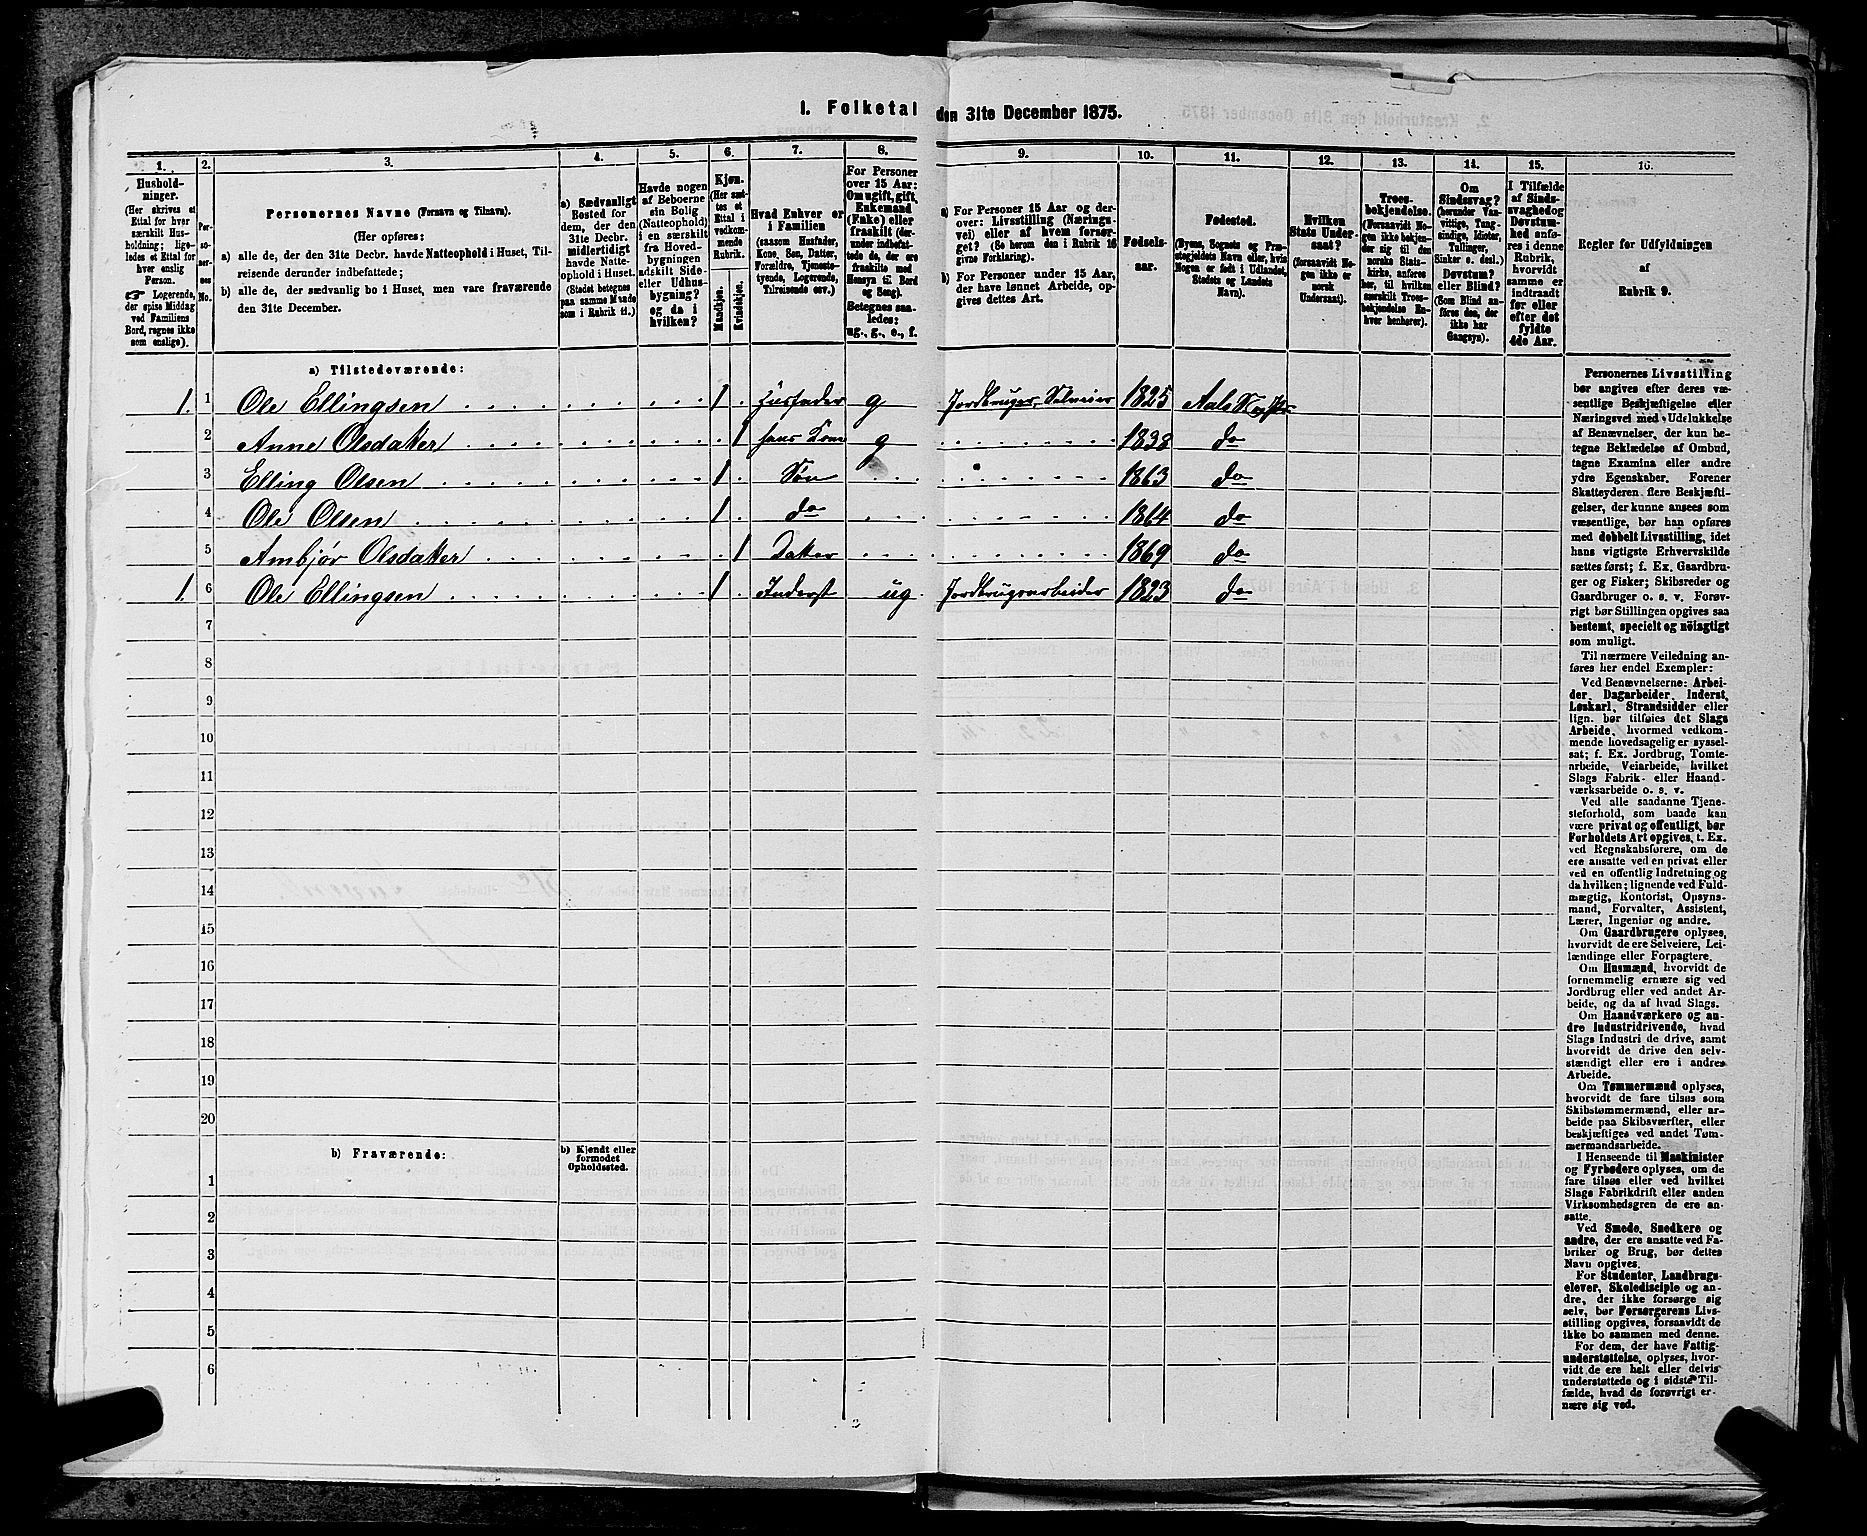 1. Folketal den 31te December 1875.
1. 2. 3. 4. 5. 6. 7. 8. 9. 10. 11. 12. 13. 14. 15. 16.
Hushold-
ninger.
(Her skrives et
Ettal for hver
særskilt Hus-
holdning; lige-
ledes et Ettal for
hver enslig
Person.
☞ Logerende,
der spise Middag
ved Familiens
Bord, regnes ikke
som enslige).
Per-
so-
ner-
nes
No.
Personernes Navne (Fornavn og Tilnavn).
(Her opføres:
a) alle de, der den 31te Decbr. havde Natteophold i Huset, Til-
reisende derunder indbefattede;
b) alle de, der sædvanlig bo i Huset, men vare fraværende
den 31te December.
a) Sædvanligt
Bosted for
dem, der den
31te Decbr.
midlertidigt
havde Natte-
ophold i Huset.
(Stedet betegnes
paa samme Maade
som i Rubrik 11.)
Havde nogen
af Beboerne
sin Bolig
(Natteophold)
i en særskilt
fra Hoved-
bygningen
adskilt Side-
eller Udhus-
bygning?
og da i
hvilken?
Kjøn.
(Her sæt-
tes et
Ettal i
vedkom-
mende
Rubrik.
Mandkjøn.
Kvindekjøn.
Hvad Enhver er
i Familien
(saasom Husfader,
Kone, Søn, Datter,
Forældre, Tjeneste-
tyende, Logerende,
Tilreisende osv.)
For Personer
over 15 Aar:
Om ugift, gift,
Enkemand
(Enke) eller
fraskilt (der-
under indbefat-
tede de, der ere
fraskilte med
Hensyn til Bord
og Seng).
Betegnes saa-
ledes:
ug., g., e., f.
a) For Personer 15 Aar og der-
over: Livsstilling (Nærings-
vei) eller af hvem forsør-
get? (Se herom den i Rubrik 16
givne Forklaring).
b) For Personer under 15 Aar,
der have lønnet Arbeide, op-
gives dettes Art.
Fødsels-
aar.
Fødested.
(Byens, Sognets og Præ-
stegjeldets Navn eller, hvis
Nogen er født i Udlandet,
Stedets og Landets
Navn).
Hvilken
Stats Under-
saat?
(forsaavidt No-
gen ikke er
norsk
Undersaat).
Troes-
bekjendelse.
(Forsaavidt No-
gen ikke bekjen-
der sig til den
norske Stats-
kirke, anføres
her, til hvilken
særskilt Troes-
bekjendelse En-
hver henhører).
Om
Sindssvag?
(herunder Van-
vittige, Tung-
sindige, Idioter,
Tullinger,
Sinker o. desl.)
Døvstum?
eller Blind?
(Som Blind an-
føres den, der
ikke har
Gangsyn).
I Tilfælde
af Sinds-
svaghed og
Døvstum-
hed anfø-
res i denne
Rubrik,
hvorvidt
samme er
indtraadt
før eller
efter det
fyldte
4de Aar.
Regler for Udfyldningen
af
Rubrik 9.
a) Tilstedeværende:
1. 1 Ole Ellingsen 1 Husfader g Jordbruger, Selveier 1825 Aals
2 Anne Olsdatter 1 hans Kone g 1838 do
3 Elling Olsen 1 Søn 1863 do
4 Ole Olsen 1 do 1864 do
5 Ambjør Olsdatter 1 Datter 1869 do
1. 6 Ole Ellingsen 1 Inderst ug Jordbrugsarbeider 1823 do
7
8
9
10
11
12
13
14
15
16
17
18
19
20
b) Fraværende:
b) Kjendt eller
formodet
Opholdssted.
1
2
3
4
5
6
Personernes Livsstilling
bør angives efter deres væ-
sentlige Beskjæftigelse eller
Næringsvei med Udelukkelse
af Benævnelser, der kun be-
tegne Beklædelse af Ombud,
tagne Examina eller andre
ydre Egenskaber. Forener
Skatteyderen flere Beskjæfti-
gelser, der kunne ansees som
væsentlige, bør han opføres
med dobbelt Livsstilling, idet
hans vigtigste Erhvervskilde
sættes først; f. Ex. Gaardbru-
ger og Fisker; Skibsreder og
Gaardbruger o. s. v. Forøv-
rigt bør Stillingen opgives saa
bestemt, specielt og nøiagtigt
som muligt.
Til nærmere Veiledning an-
føres her endel Exempler:
Ved Benævnelserne: Arbei-
der, Dagarbeider, Inderst,
Løskarl, Strandsidder eller
lign. bør tilføies det Slags
Arbeide, hvormed vedkom-
mende hovedsagelig er syssel-
sat; f. Ex. Jordbrug, Tomte-
arbeide, Veiarbeide, hvilket
Slags Fabrik- eller Haand-
værksarbeide o. s. v.
Ved alle saadanne Tjene-
steforhold, som baade kan
være privat og offentligt, bør
Forholdets Art opgives, t. Ex.
ved Regnskabsførere, om de
ere ansatte ved en privat eller
ved en offentlig Indretning og
da hvilken; lignende ved Fuld-
mægtig, Kontorist, Opsyns-
mand, Forvalter, Assistent,
Lærer, Ingeniør og andre.
Om Gaardbrugere oplyses,
hvorvidt de ere Selveiere, Lei-
lændinge eller Forpagtere.
Om Husmænd, hvorvidt de
fornemmelig ernære sig ved
Jordbrug eller ved andet Ar-
beide, og da af hvad Slags.
Om Haandværkere og an-
dre Industridrivende, hvad
Slags Industri de drive, samt
hvorvidt de drive den selv-
stændigt eller ere i andres
Arbeide.
Om Tømmermænd oplyses,
hvorvidt de fare tilsøs som
Skibstømmermænd, eller ar-
beide paa Skibsværfter, eller
beskjæftiges ved andet Tøm-
mermandsarbeide.
I Henseende til Maskinister
og Fyrbødere oplyses, om de
fare tilsøs eller ved hvilket
Slags Fabrikdrift eller anden
Virksomhedsgren de ere an-
satte.
Ved Smede, Snedkere og
andre, der ere ansatte ved Fa-
briker og Brug, bør dettes
Navn opgives.
For Studenter, Landbrugs-
elever, Skoledisciple og an-
dre, der ikke forsørge sig
selv, bør Forsørgerens Livs-
stilling opgives, forsaavidt de
ikke bo sammen med denne.
For dem, der have Fattig-
understøttelse, oplyses, hvor-
vidt de ere helt eller delvis
understøttede og i sidste Til-
fælde, hvad de forøvrigt er-
nære sig ved.